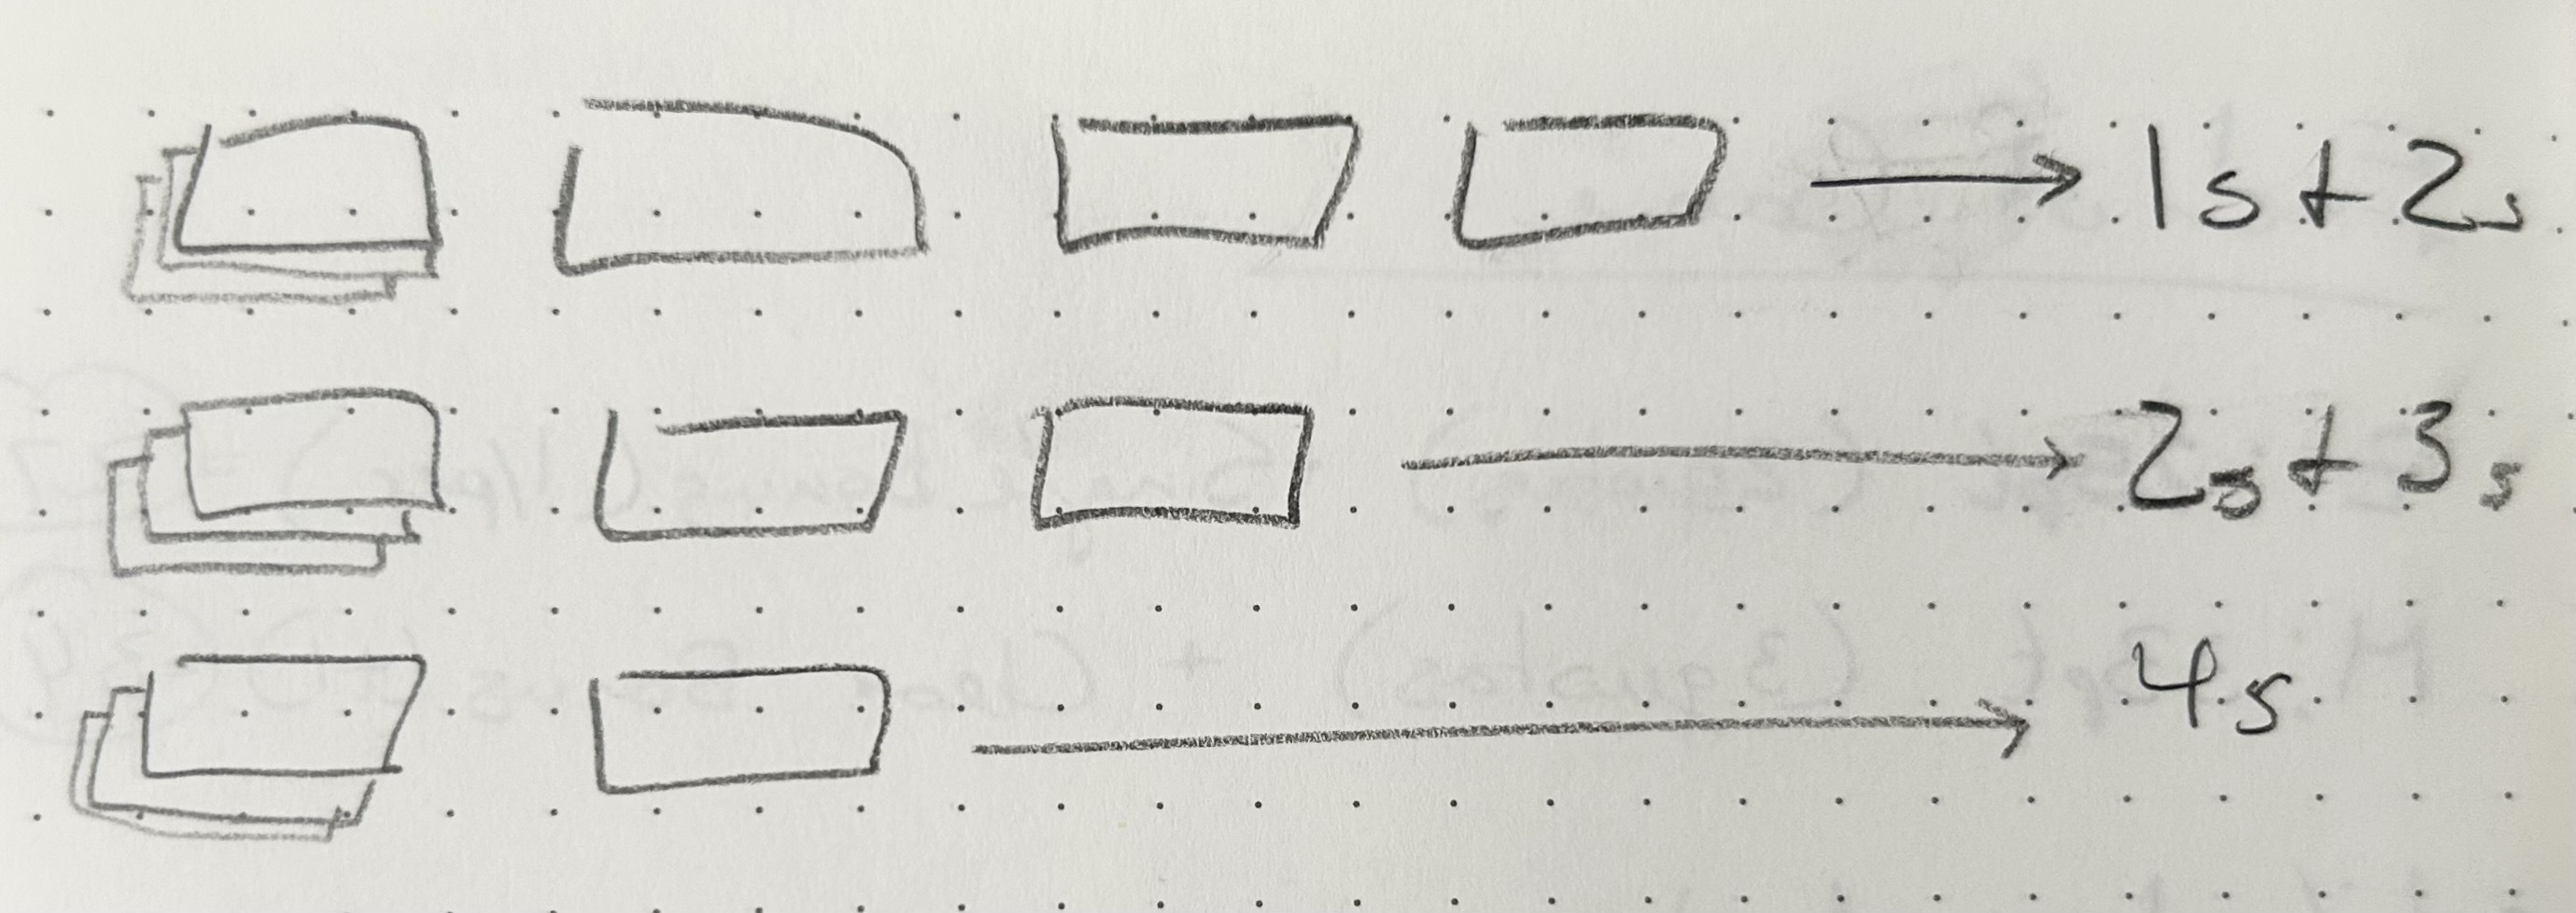 → 1s + 2s
→ 2s + 3s
→ 4s